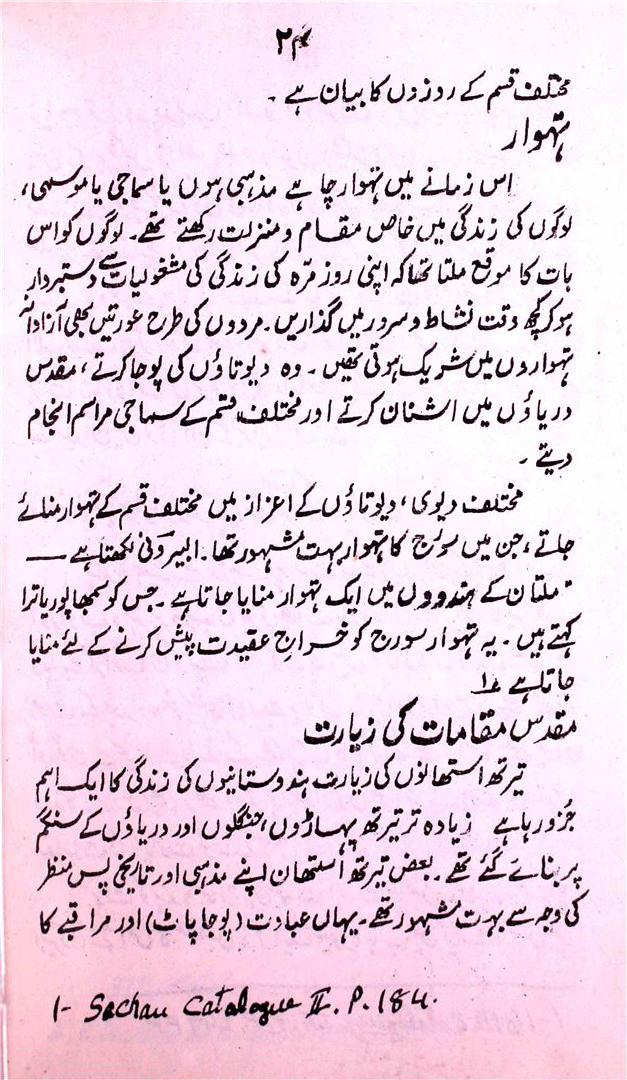 ۲۴
مختلف قسم کے روزوں کا بیان ہے ۔
تہوار
اس زمانے میں تہوار چاہے مذہبی ہوں یا سماجی یا موسمی،
لوگوں کی زندگی میں خاص مقام و منزلت رکھتے تھے۔ لوگوں کو اس
بات کا موقع ملتا تھا کہ اپنی روز مرّہ کی زندگی کی مشغولیات سے دستبردار
ہو کر کچھ وقت نشاط و سرور میں گذاریں۔ مردوں کی طرح عورتیں بھی آزادانہ
تہواروں میں شریک ہوتی تھیں۔ وہ دیوتاؤں کی پوجا کرتے، مقدس
دریاؤں میں اشنان کرتے اور مختلف قسم کے سماجی مراسم انجام
دیتے ۔
مختلف دیوی، دیوتاؤں کے اعزاز میں مختلف قسم کے تہوار منائے
جاتے، جن میں سورج کا تہوار بہت مشہور تھا۔ البیرونی لکھتا ہے —
" ملتان کے ہندووں میں ایک تہوار منایا جاتا ہے۔ جس کو سمبھاپور یاترا
کہتے ہیں۔ یہ تہوار سورج کو خراجِ عقیدت پیش کرنے کے لئے منایا
جاتا ہے ۱؎
مقدس مقامات کی زیارت
تیرتھ استھانوں کی زیارت ہندوستانیوں کی زندگی کا ایک اہم
جُزو رہا ہے زیادہ تر تیرتھ پہاڑوں، جنگلوں اور دریاؤں کے سنگم
پر بنائے گئے تھے۔ بعض تیرتھ استھان اپنے مذہبی اور تاریخی پس منظر
کی وجہ سے بہت مشہور تھے۔ یہاں عبادت (پوجا پاٹ) اور مراقبے کا
1- Sachau Catalogue II. P. 184.